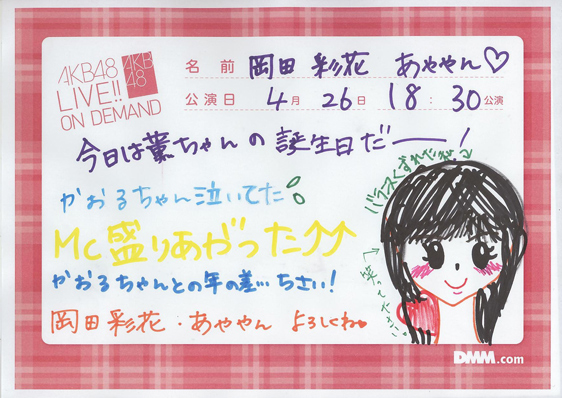 AKB48
LIVE!!
ON DEMAND
AKB
48
名前 岡田 彩花 あややん♡
公演日 4月 26日 18:30公演
今日は薫ちゃんの誕生日だーー!
かおるちゃん泣いてた
MC盛りあがった↑↑
かおるちゃんとの年の差…ちさい!
岡田彩花・あややん よろしくね
笑ってください
DMM.com